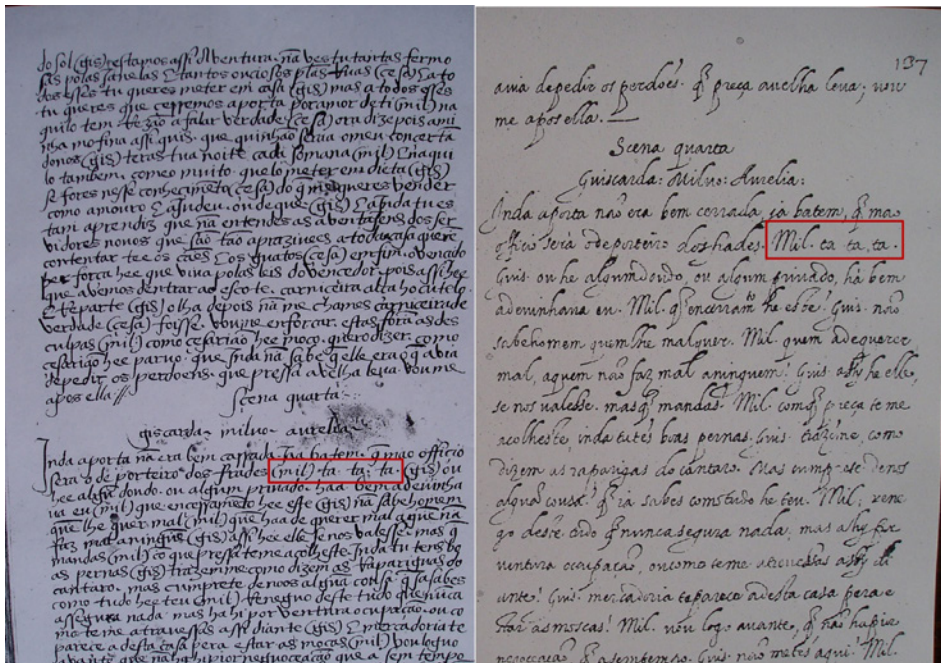 do sol (gis) restamos assi A ventura. nã ves tu tantas fermo
sas polas janelas
dos esses tu queres meter em casa (gis) mas a todos esses
tu queres que cerremos a porta por amor de ti (mil) na
quilo tem rezão a falar verdade (cesa) ora dizepois a mi
nha mofina assi quis. que quinhão seria o meu
(gis) teras tua noite cadi somana (mil) E naqui
lo tambem. comeo muito. que lo meter em dieta (gis)
se fores nesse conhecimẽto (cesa) do q̃ me queres vender
como amouro E a Judeu. on de que (gis) E ainda tu es
tam aprendiz que nã entendes as aventajens dos ser
vidores novos que são tão apraziuees a toda casa que rẽ
contentar tee os cães E os guatos (cesa) emfim. o venado
per forca hee que viva polas leis do vencedor. pois assi hee
que avemos dentrar ao escote. carniceira alta ho cutelo.
E reparte (gis) olha depois nã me chames carniceira de
verdade (cesa) foisse. vou me enforcar. estas forã as des
culpas (mil) como cesarião hee moço. quero dizer. como
cesarião hee parvo. que Inda nã sabe q̃ elle era o q̃ avia
de pedir os perdoens. que pressa a velha leva. vou me
apos ella
Scena quarta
giscarda. milvo. aurelia
Inda a porta nã era bem carrada. Ja batem. q̃ mao officio
sera o de porteiro dos frades (mil) ta. ta. ta. (gis) ou
hee algũ doudo. ou algum privado. haa bem adevinha
va eu (mil) que encerramẽto hee este (gis) nã sabe homem
que lhe quer mal (mil) que haa de querer mal a que nã
faz mal a ningũe (gis) assi hee elle se nos valesse. mas q̃
mandas (mil) co que pressa te me acolheste. Inda tu tens bo
as pernas (gis) trazem me como dizem as raparigas do
cantaro. mas cumprete de nos algũa cousa. q̃ Ja sabes
como tudo hee teu (mil) Renego deste tudo que nũca
assegura nada. mas ha hi por ventura ocupação. ou co
mo te me atravessas assi diante (gis) E mercadoria te
parece a desta casa pera estar as moscas (mil) vou loguo
avante que nã ha hi por negoceação que a sem tempo
137
avia de pedir os perdoẽs. q̃ preça a velha leva; vou
me apos ella.
Scena quarta
Guiscarda: Milvo: Aurelia:
Inda aporta não era bem cerrada, ja batem, q̃ mao
officio será o deporteiro dos frades. Mil. ta ta, ta.
Guis. ou he algum doudo, ou algum privado, há bem
adevinhava eu. Mil. q̃ encerram.to he este? Guis. não
sabe homem quem lhe mal quer. Mil. quem ade querer
mal, aquem não faz mal aninguem? Guis. assy he elle,
se nos valesse. mas q̃ mandas? Mil. com q̃ preça te me
acolheste, inda tu tẽs boas pernas. Guis. trazẽme, como
dizem as raparigas do cantaro. Mas cumprete denos
algũa cousa? q̃ ja sabes comotudo he teu. Mil. rene
go deste tudo q̃ nunca segura nada, mas a hy por
ventura ocupação, ou como te me atravessas assy di
ante? Guis. mercadoria te parece a desta casa pera e
star as moscas? Mil. vou logo avante, q̃ não ha pior
negoceação, q̃ a sem tempo. Guis. não metés aqui? Mil.